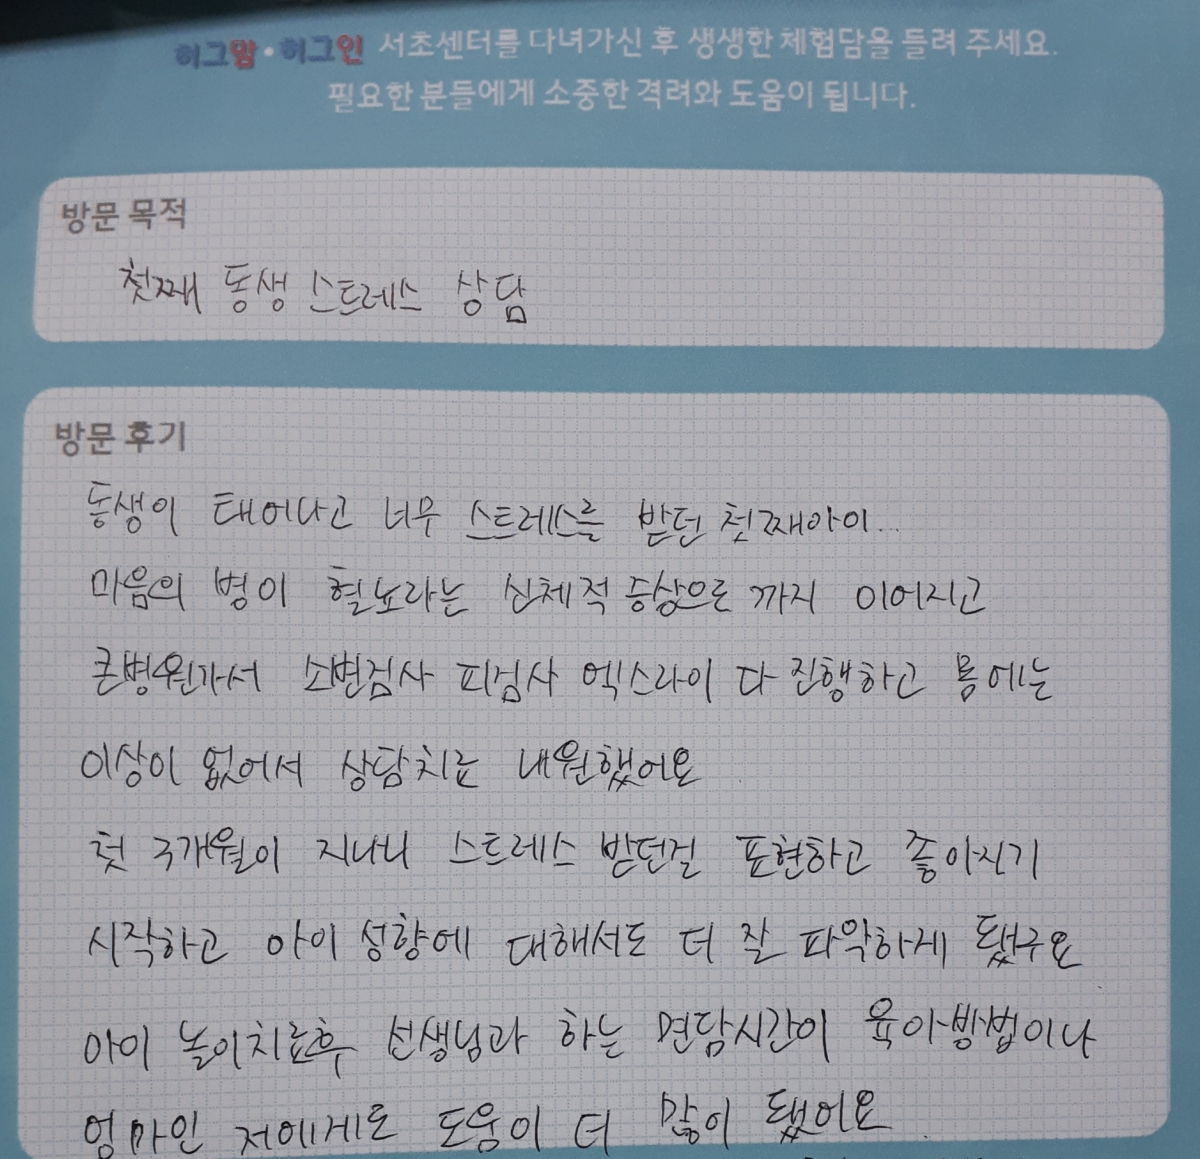 허그맘·허그인 서초센터를 다녀가신 후 생생한 체험담을 들려 주세요.
필요한 분들에게 소중한 격려와 도움이 됩니다.
방문 목적
첫째 동생 스트레스 상담
방문 후기
동생이 태어나고 너무 스트레스를 받던 첫째아이...
마음의 병이 혈뇨라는 신체적 증상으로 까지 이어지고
큰병원가서 소변검사 피검사 엑스라이 다 진행하고 몸에는
이상이 없어서 상담치료 내원했어요
첫 3개월이 지나니 스트레스 받던걸 표현하고 좋아지기
시작하고 아이 성향에 대해서도 더 잘 파악하게 됐구요
아이 놀이치료후 선생님과 하는 면담시간이 육아방법이나
엄마인 저에게도 도움이 더 많이 됐어요